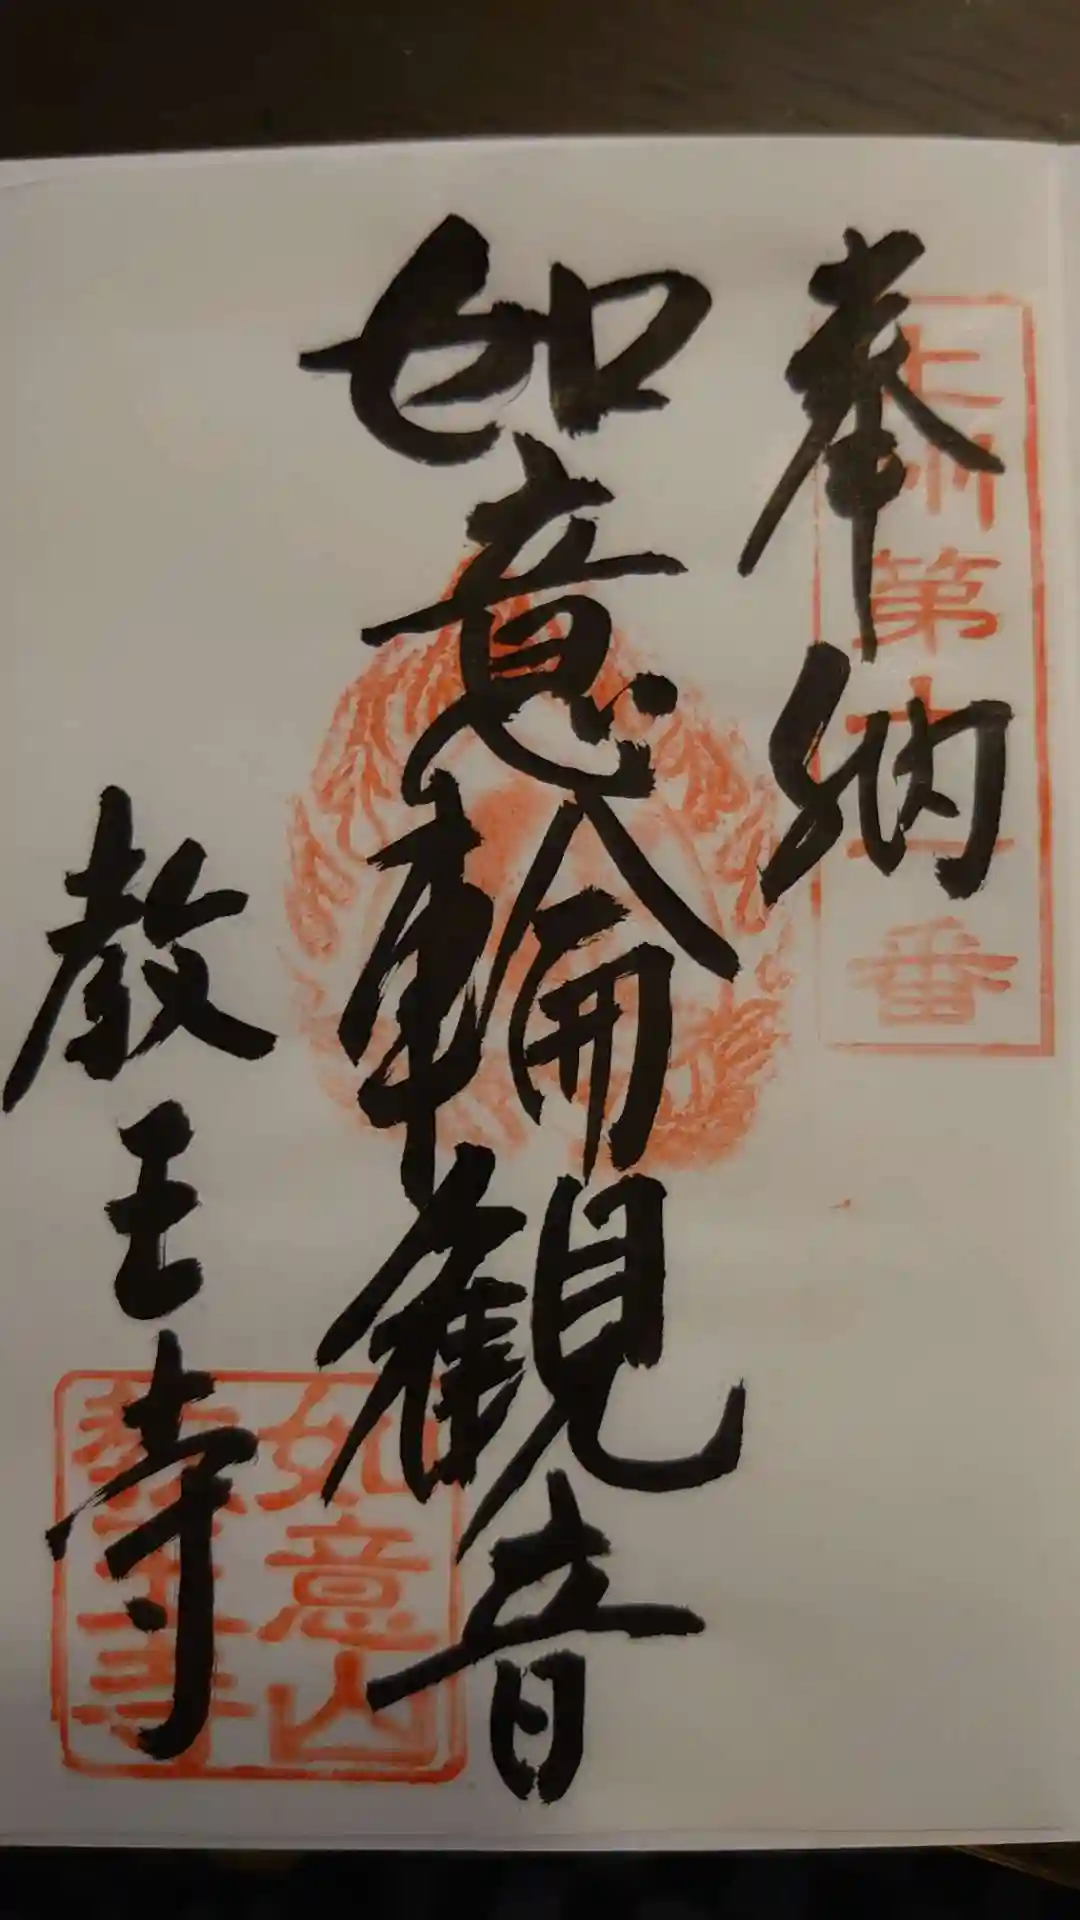 奉納
上州第十一番
如意輪観音
教王寺
如意山
教王寺